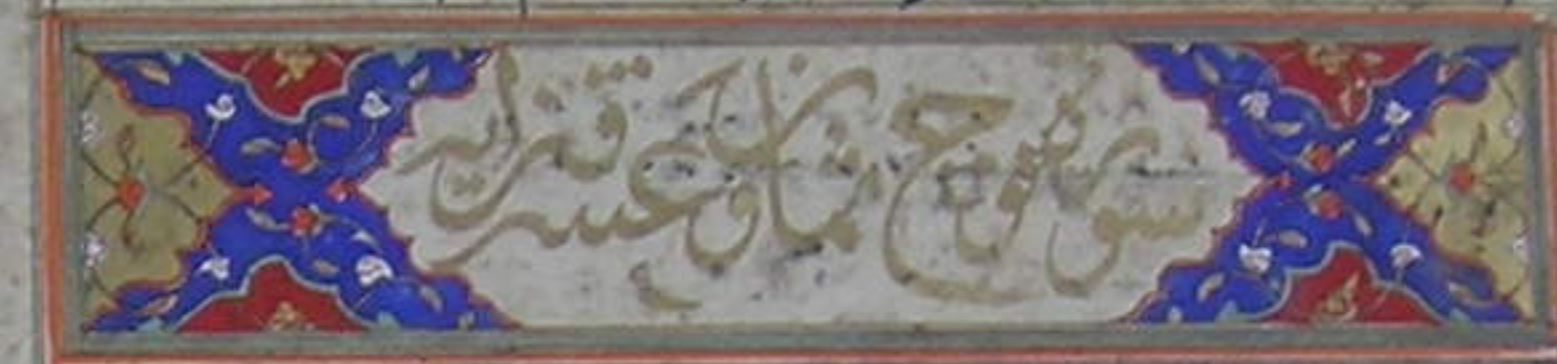 سورة نوح ثمان و عشر‌ون آیة